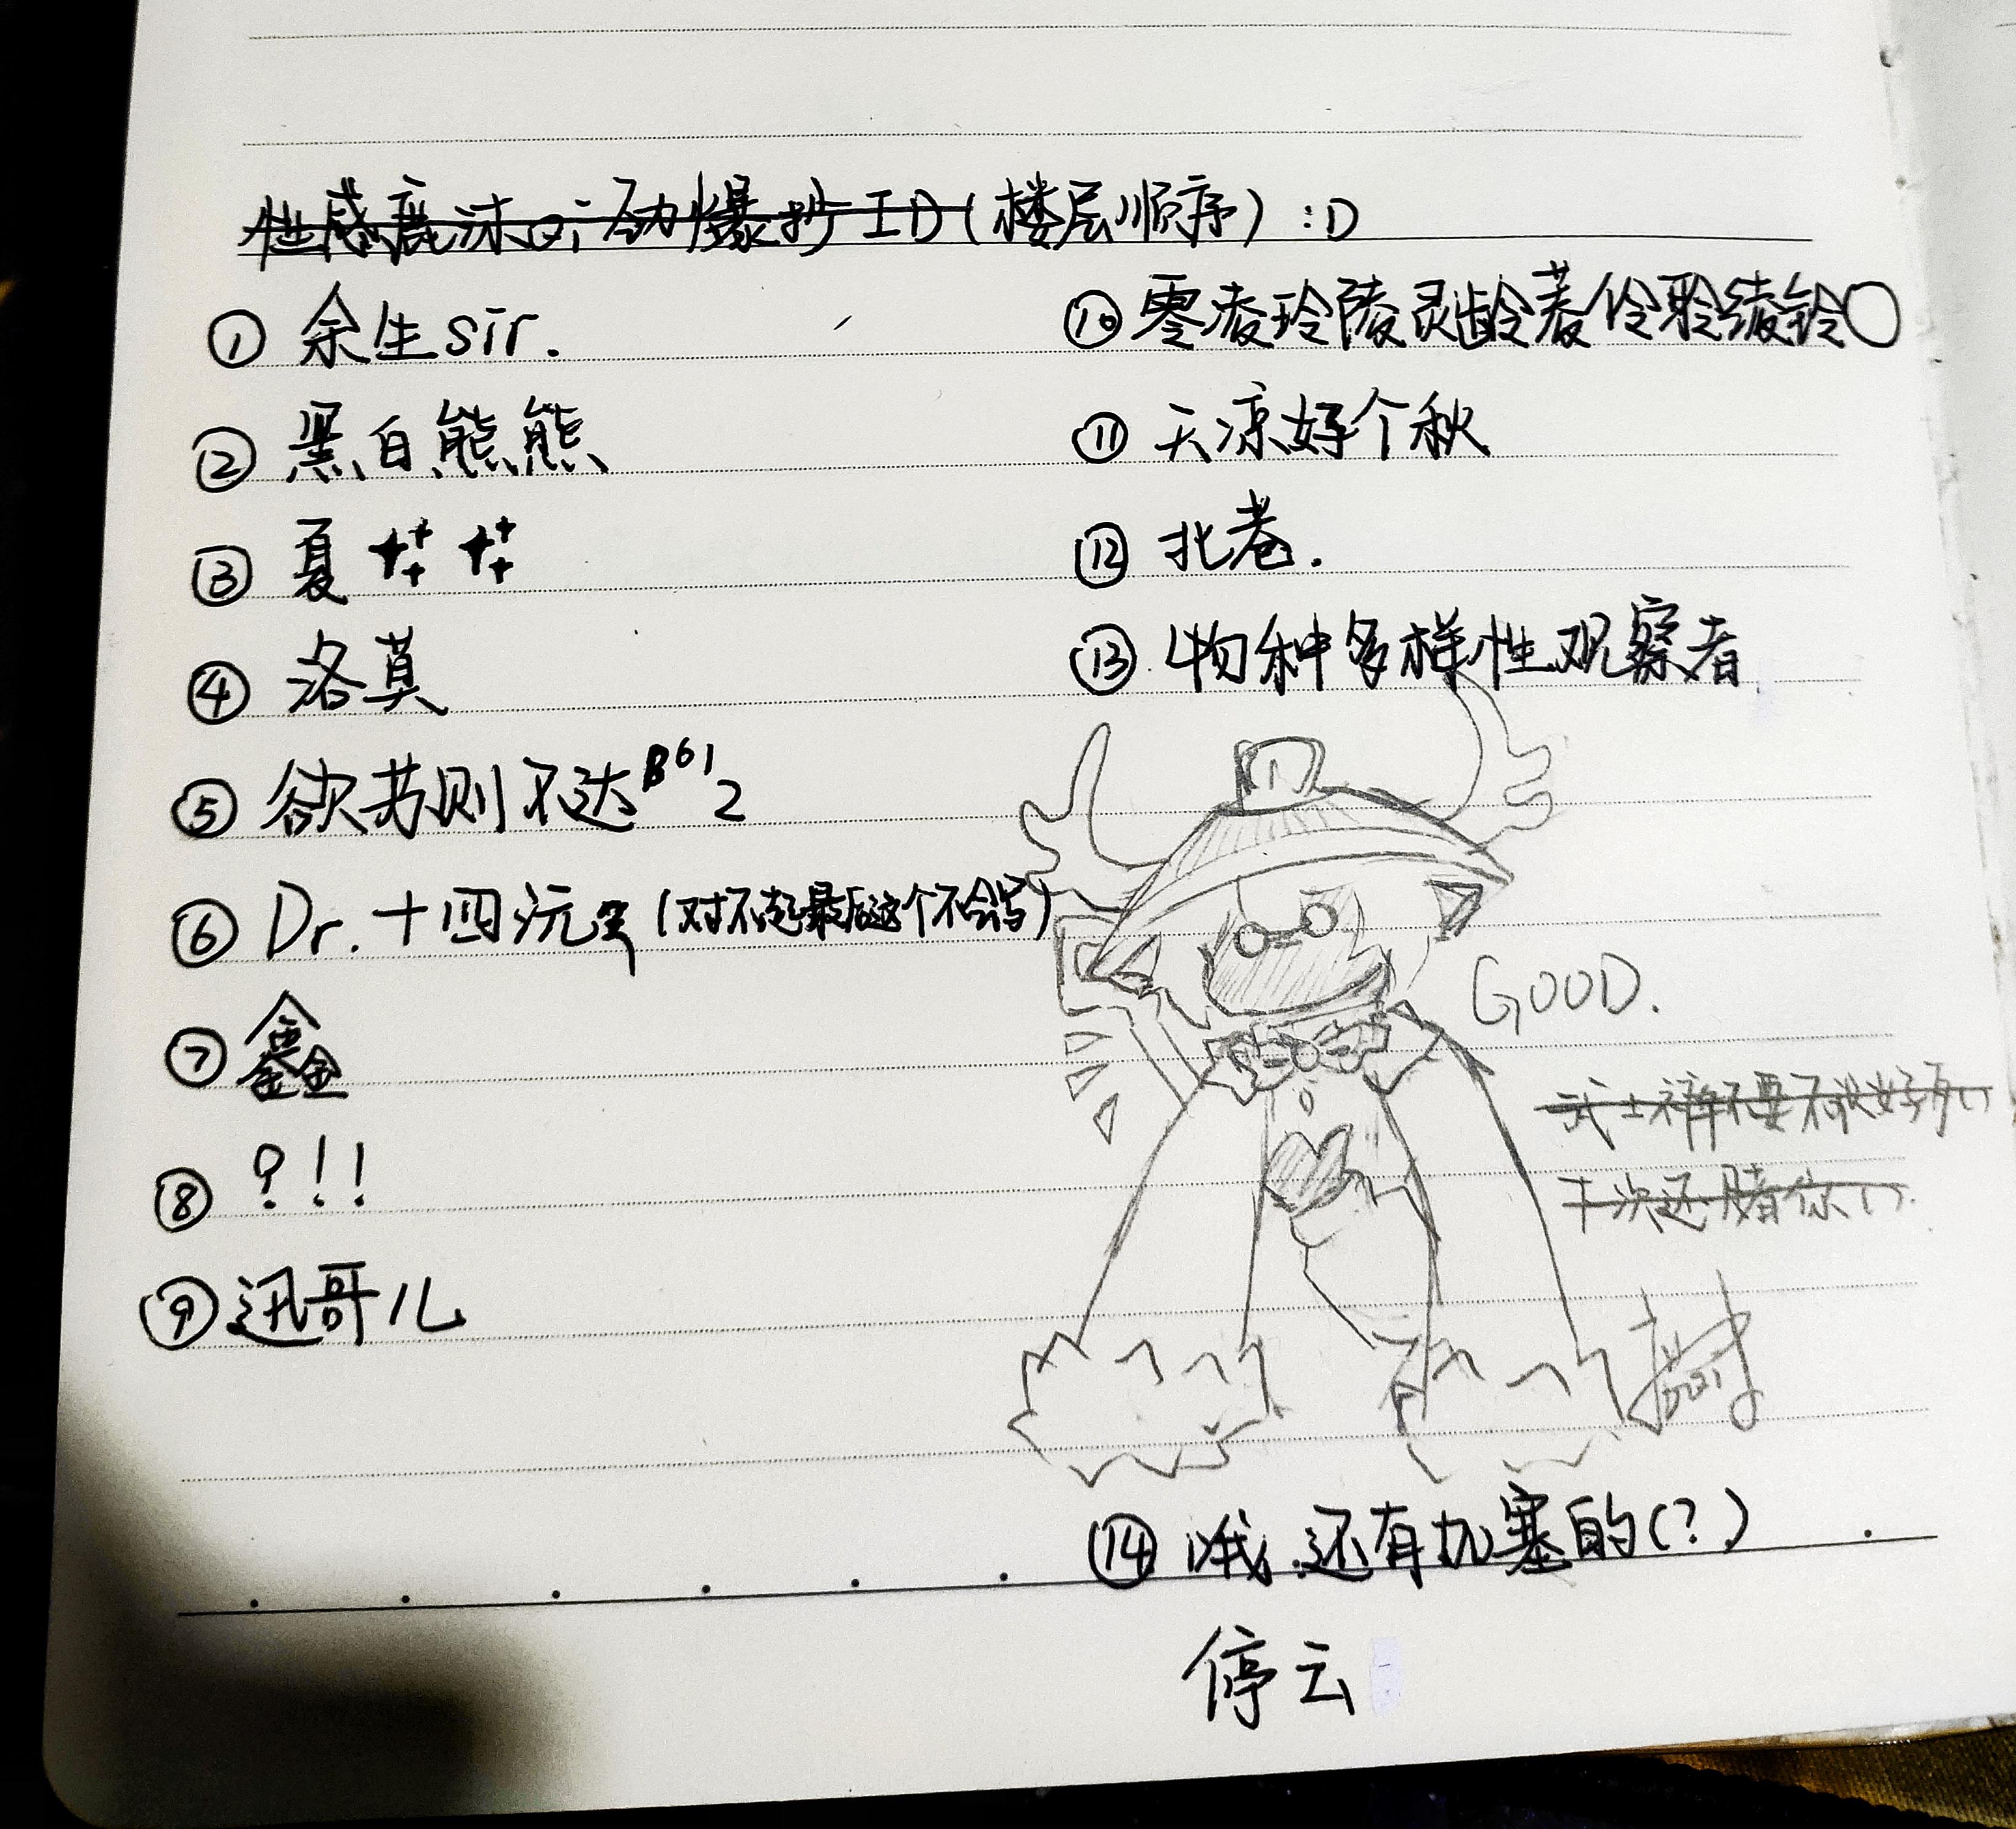 性感鹿沫 劲爆抄ID(楼层顺序) :D
① 余生sir.
② 黑白熊熊
③ 夏
④ 洛莫
⑤ 欲苏则不达B612
⑥ Dr.十四沅 (对不起最后这个不会写)
⑦ 鑫
⑧ ?!!
⑨ 迅哥儿
⑩ 零凌玲陵灵龄蓤伶聆绫铃〇
⑪ 天凉好个秋
⑫ 北巷.
⑬ 物种多样性观察者
GOOD.
武士裤不要不收好再()
下次还赌你().
⑭ 哦 还有加塞的(?)
停云